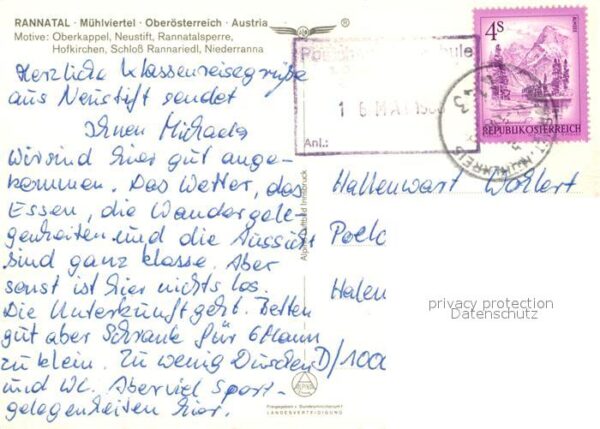 RANNATAL · Mühlviertel · Oberösterreich · Austria
Motive: Oberkappel, Neustift, Rannatalsperre,
Hofkirchen, Schloß Rannariedl, Niederranna
Herzliche Klassenreisegrüße
aus Neustift sendet
Ihnen Michaela
Wir sind hier gut ange-
kommen. Das Wetter, das
Essen, die Wandergele-
genheiten und die Aussicht
sind ganz klasse. Aber
sonst ist hier nichts los.
Die Unterkunft geht. Betten
gut aber Schränke für 6 Mann
zu klein. Zu wenig Duschen
und WC. Aber viel Sport-
gelegenheiten hier.
16. MAI
Anl.:
4S
REPUBLIK ÖSTERREICH
Hallenwart Wohlert
D/100
Alpine Luftbild Innsbruck
privacy protection
Datenschutz
Freigegeben v. Bundesministerium f.
LANDESVERTEIDIGUNG